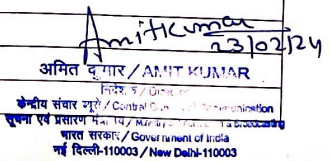 Amitkumar
23/02/24
अमित कुमार / AMIT KUMAR
निदेशक / Director
केन्द्रीय संचार ब्यूरो / Central Communication
सूचना एवं प्रसारण / Broadcasting
भारत सरकार / Government of India
नई दिल्ली-110003 / New Delhi-110003